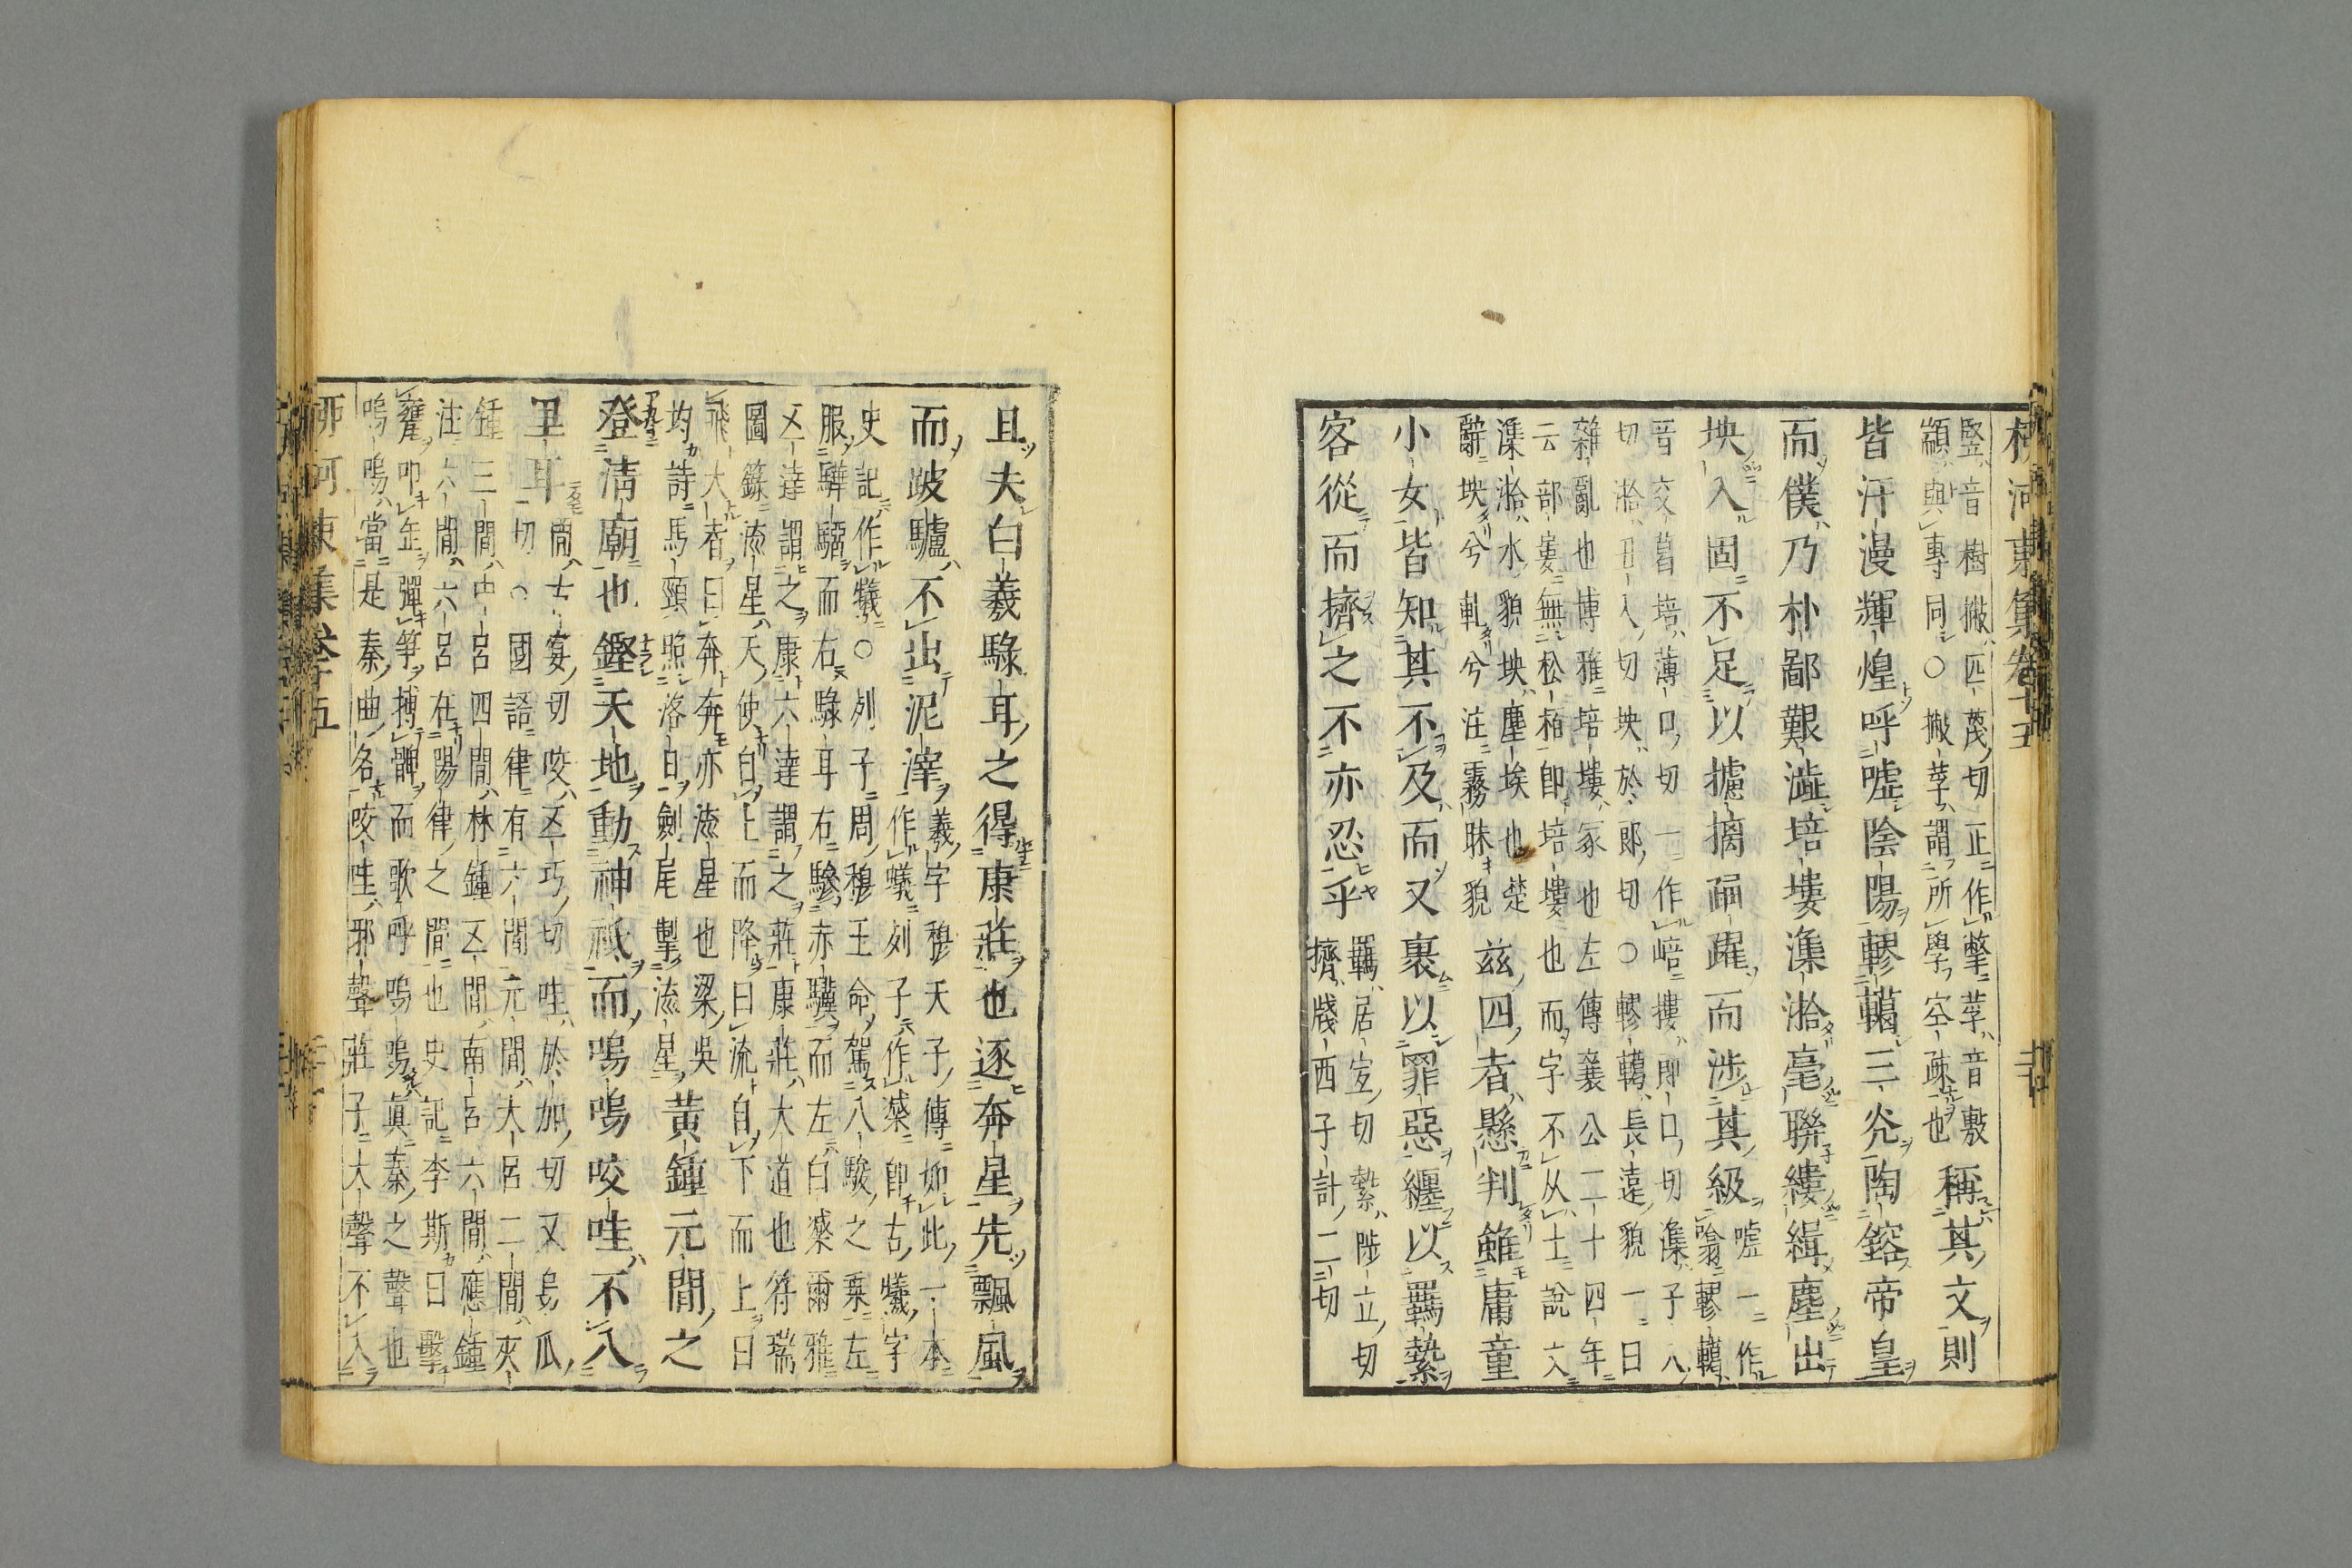 柳河東集卷十五
豎音樹撇匹茂切正作擎莩音敷
顓與專同○撇莩謂所學空疎也
稱其文則
皆汗漫輝煌呼嘘陰陽轇轕三光陶鎔帝皇
而僕乃朴鄙艱澁培塿潗湁毫聯縷緝塵出
坱入固不足以攄摛踊躍而涉其級
嘘一作
噏轇轕
音交葛培薄口切一作㟝摟即口切潗子入
切湁丑入切坱於郎切○轇轕長遠貌一曰
雜亂也博雅培塿冢也左傳襄公二十四年
云部婁無松柏即培塿也而字不从土說文
潗湁水貌坱塵埃也楚
辭坱兮軋兮注霧昧貌
兹四者懸判雖庸童
小女皆知其不及而又裹以罪惡纏以羈縶
客從而擠之不亦忍乎
羈居宜切縶陟立切
擠牋西子計二切
且夫白羲騄耳之得康莊也逐奔星先飄風
而跛驢不出泥滓
羲字穆天子傳如此一本
作蟻列子作𣽎即古犧字
史記作犧○列子周穆王命駕八駿之乗左
服驊騮而右騄耳右驂赤驥而左白𣽎爾雅
五達謂之康六達謂之莊康莊大道也符瑞
圖籙流星天使自上而降曰流自下而上曰
飛大者曰奔奔亦流星也梁吳
均詩馬頸照洛日劍尾掣流星
黄鍾元間之
登清廟也鏗天地動神祇而嗚嗚咬哇不入
里耳
間古宴切咬五巧切哇於加切又烏瓜
切○國語律有六間元間大呂二間夾
鍾三間中呂四間林鍾五間南呂六間應鍾
注六間六呂在陽律之間也史記李斯曰擊
甕叩缶彈箏搏髀而歌呼嗚嗚眞秦之聲也
嗚嗚當是秦曲名咬哇邪聲莊子大聲不入
柳河東集卷十五